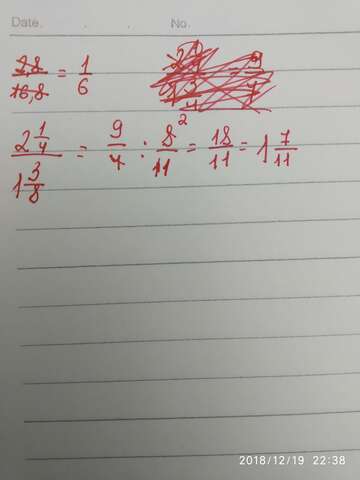 Date. No.
2,8/16,8 = 1/6
2 1/4 / 1 3/8 = 9/4 : 8/11 2 = 18/11 = 1 7/11
2018/12/19 22:38